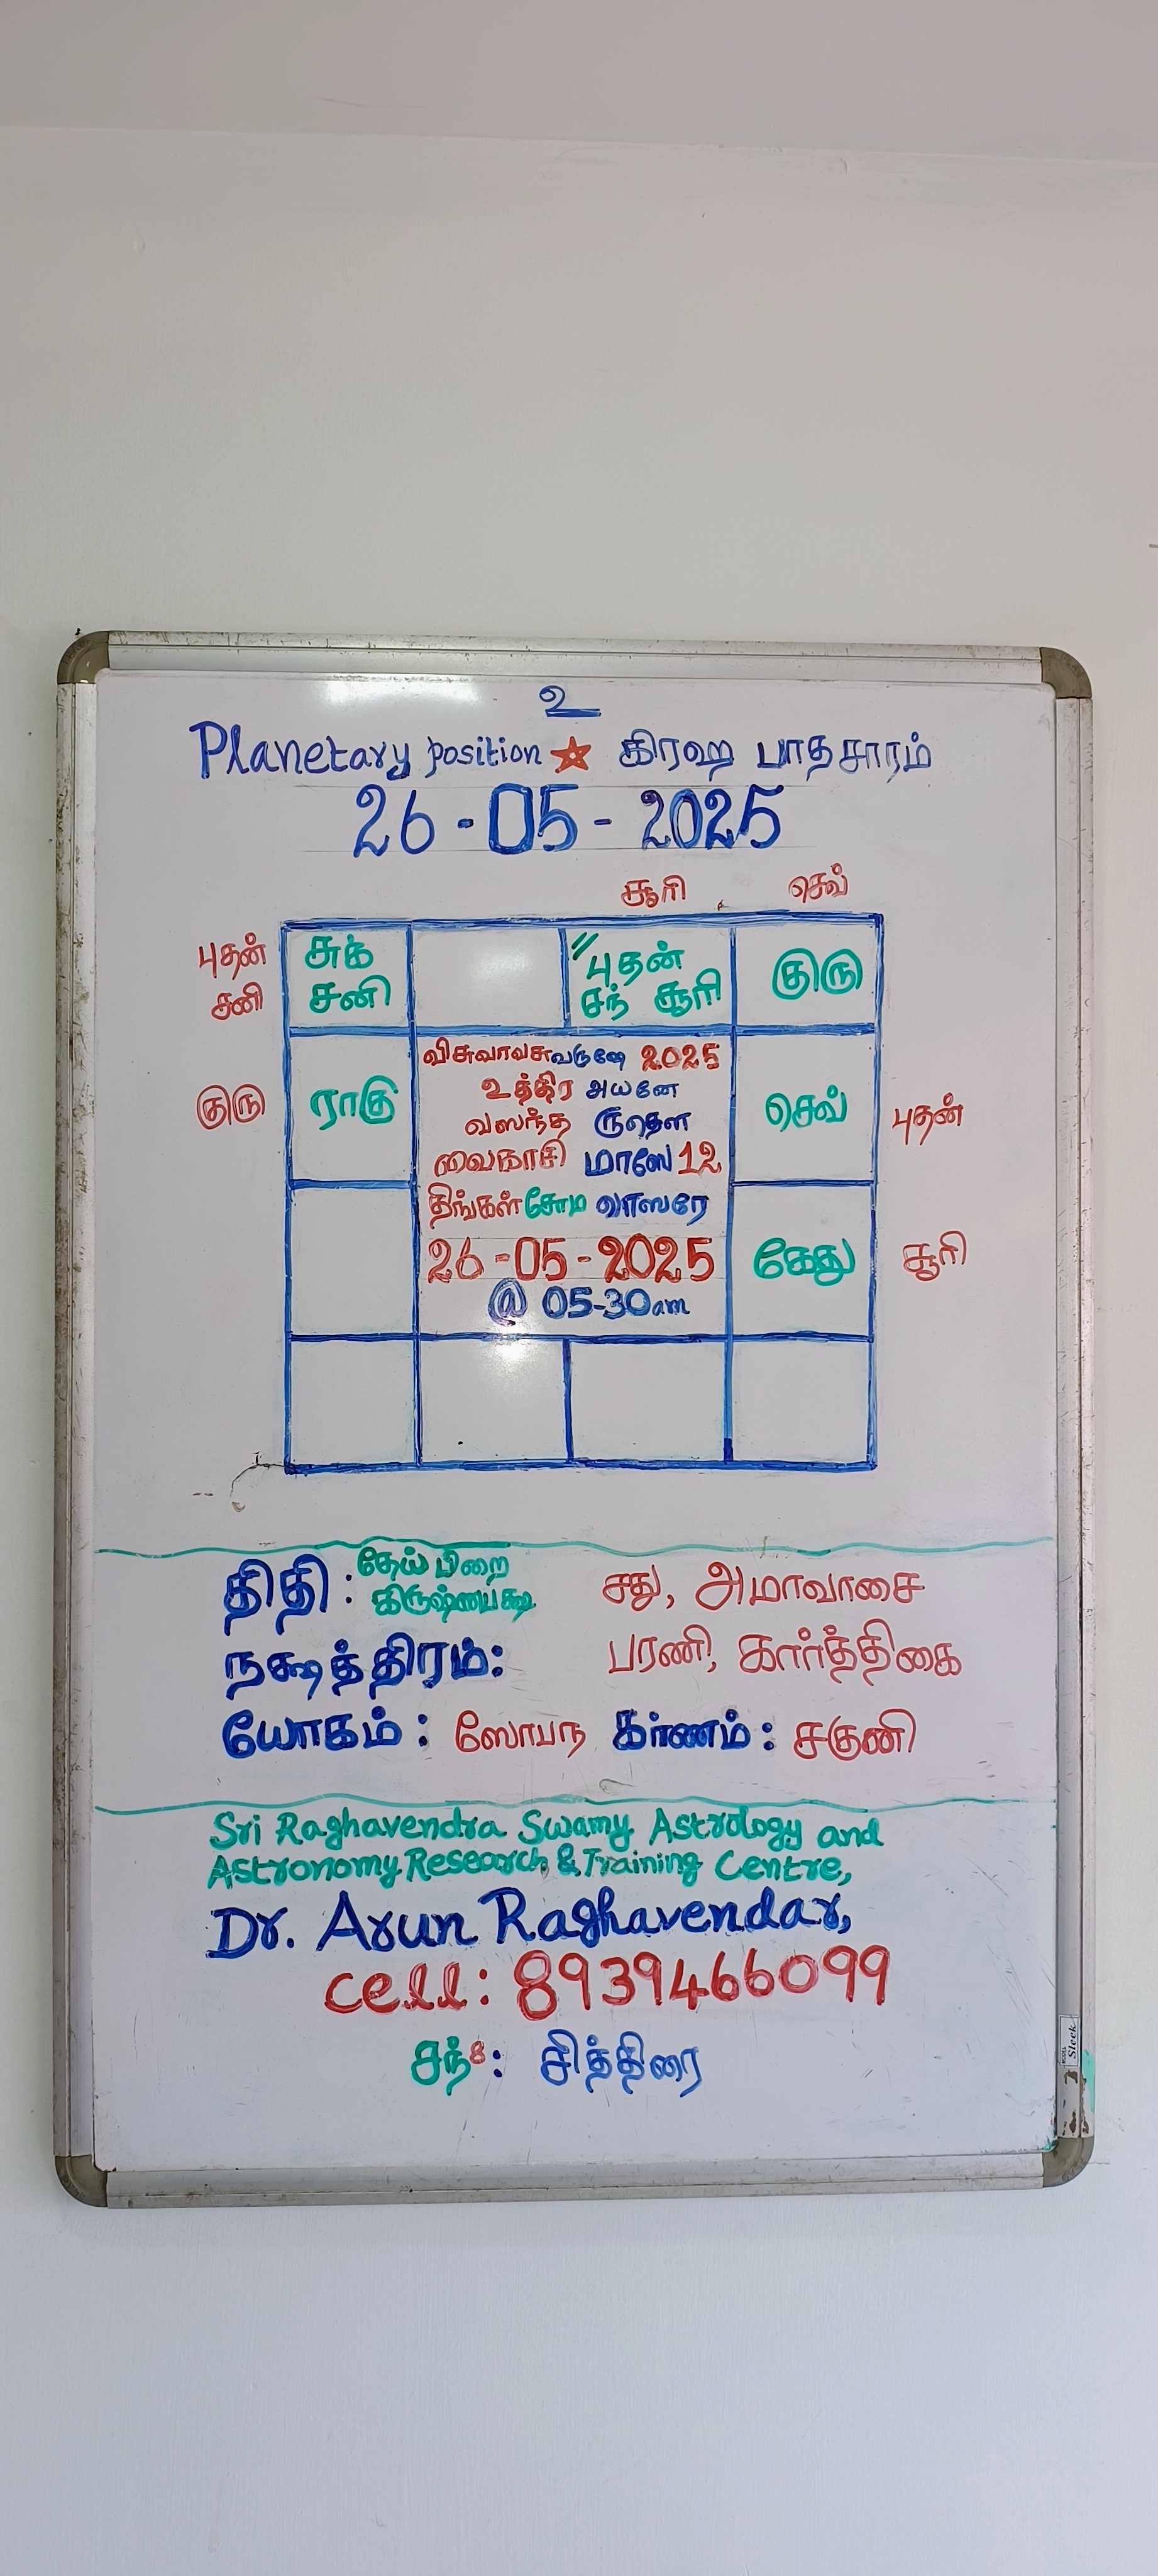 உ
Planetary position ☆ கிரஹ பாதசாரம்
26-05-2025
சூரி செவ்
புதன் சனி
சுக் சனி
"புதன் சந் சூரி
குரு
விசுவாவசுவருஷே 2025
உத்திர அயனே
வஸந்த ருதௌ
வைகாசி மாஸே 12
திங்கள் சோம வாஸரே
26-05-2025
@ 05-30am
குரு
ராகு
செவ்
புதன்
கேது
சூரி
திதி : தேய் பிறை
கிருஷ்ணபக்ஷ
சது, அமாவாசை
நக்ஷத்திரம்: பரணி, கார்த்திகை
யோகம் : ஸோபந கர்ணம் : சகுனி
Sri Raghavendra Swamy Astrology and
Astronomy Research & Training Centre,
Dr. Arun Raghavendar,
cell: 8939466099
சந்8: சித்திரை
Sleek